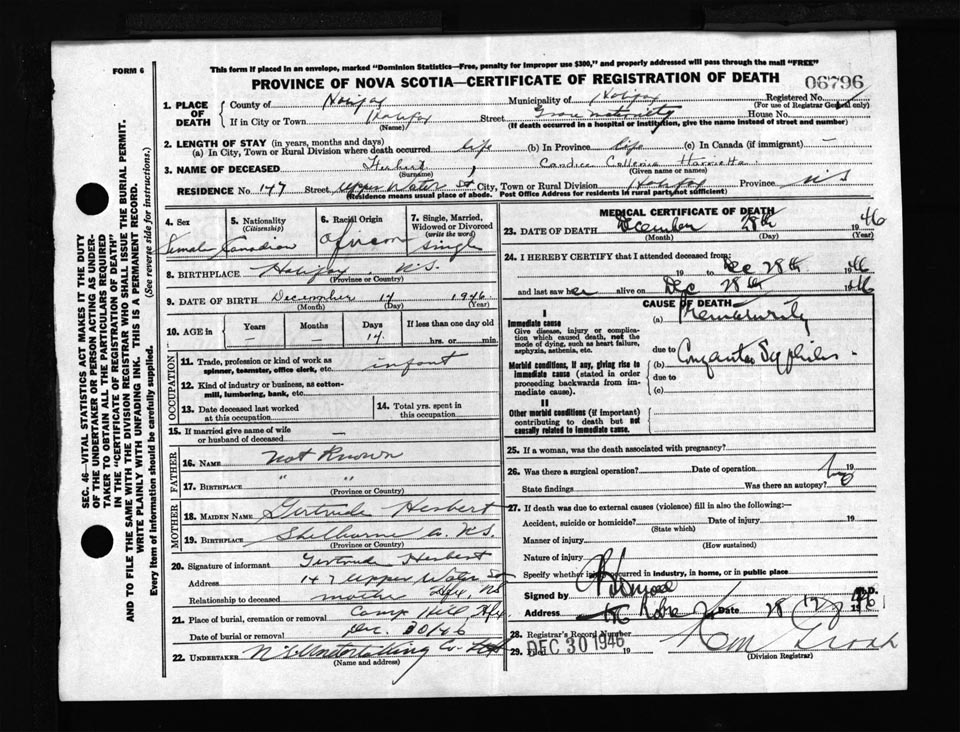 This form if placed in an envelope, marked "Dominion Statistics—Free, penalty for improper use $300," and properly addressed will pass through the mail "FREE"
FORM 6
PROVINCE OF NOVA SCOTIA—CERTIFICATE OF REGISTRATION OF DEATH
06796
1. PLACE OF DEATH
County of Halifax Municipality of Halifax Registered No.
(For use of Registrar General only)
If in City or Town Halifax Street Grace Maternity House No.
(Name) (If death occurred in a hospital or institution, give the name instead of street and number)
2. LENGTH OF STAY (in years, months and days)
(a) In City, Town or Rural Division where death occurred life (b) In Province life (c) In Canada (if immigrant) —
3. NAME OF DECEASED Herbert, Candice Harrietta
(Surname) (Given name or names)
RESIDENCE No. 147 Street Upper Water St City, Town or Rural Division Halifax Province N.S
(Residence means usual place of abode. Post Office Address for residents in rural parts not sufficient)
4. Sex
Female
5. Nationality
(Citizenship)
Canadian
6. Racial Origin
African
7. Single, Married, Widowed or Divorced
(write the word)
Single
8. BIRTHPLACE Halifax N.S.
(Province or Country)
9. DATE OF BIRTH December 14 1946
(Month) (Day) (Year)
10. AGE in
Years Months Days If less than one day old
— — 14. hrs. or min.
OCCUPATION
11. Trade, profession or kind of work as spinner, teamster, office clerk, etc. infant
12. Kind of industry or business, as cotton-mill, lumbering, bank, etc.
13. Date deceased last worked at this occupation
14. Total yrs. spent in this occupation
15. If married give name of wife or husband of deceased —
FATHER
16. NAME Not Known
17. BIRTHPLACE " "
(Province or Country)
MOTHER
18. MAIDEN NAME Gertrude Herbert
19. BIRTHPLACE Shelburne Co. N.S.
(Province or Country)
20. Signature of informant Gertrude Herbert
Address 147 Upper Water St
Relationship to deceased mother Hfx, NS
21. Place of burial, cremation or removal Camp Hill Hfx
Date of burial or removal Dec. 30/46
22. UNDERTAKER N.S. Undertaking Co.
(Name and address)
MEDICAL CERTIFICATE OF DEATH
23. DATE OF DEATH December 28th 1946
(Month) (Day) (Year)
24. I HEREBY CERTIFY that I attended deceased from:
19 to Dec 28th 1946
and last saw her alive on Dec 28th 1946
CAUSE OF DEATH
I
Immediate cause
Give disease, injury or complication which caused death, not the mode of dying, such as heart failure, asphyxia, asthenia, etc.
(a) Prematurity
due to
Morbid conditions, if any, giving rise to immediate cause (stated in order proceeding backwards from immediate cause).
(b) Congenital Syphilis
due to
(c)
II
Other morbid conditions (if important) contributing to death but not causally related to immediate cause.
25. If a woman, was the death associated with pregnancy?
26. Was there a surgical operation? Date of operation 19
State findings Was there an autopsy? No
27. If death was due to external causes (violence) fill in also the following:—
Accident, suicide or homicide? Date of injury 19
(State which)
Manner of injury
(How sustained)
Nature of injury
Specify whether injury occurred in industry, in home, or in public place
Signed by M.D.
Address Date 28/12/ 1946
28. Registrar's Record Number
29. Filed DEC 30 1946 19
(Division Registrar)
SEC. 46—VITAL STATISTICS ACT MAKES IT THE DUTY
OF THE UNDERTAKER OR PERSON ACTING AS UNDER-
TAKER TO OBTAIN ALL THE PARTICULARS REQUIRED
IN THE "CERTIFICATE OF REGISTRATION OF DEATH"
AND TO FILE THE SAME WITH THE DIVISION REGISTRAR WHO SHALL ISSUE THE BURIAL PERMIT.
WRITE PLAINLY WITH UNFADING INK. THIS IS A PERMANENT RECORD.
Every item of information should be carefully supplied. (See reverse side for instructions.)